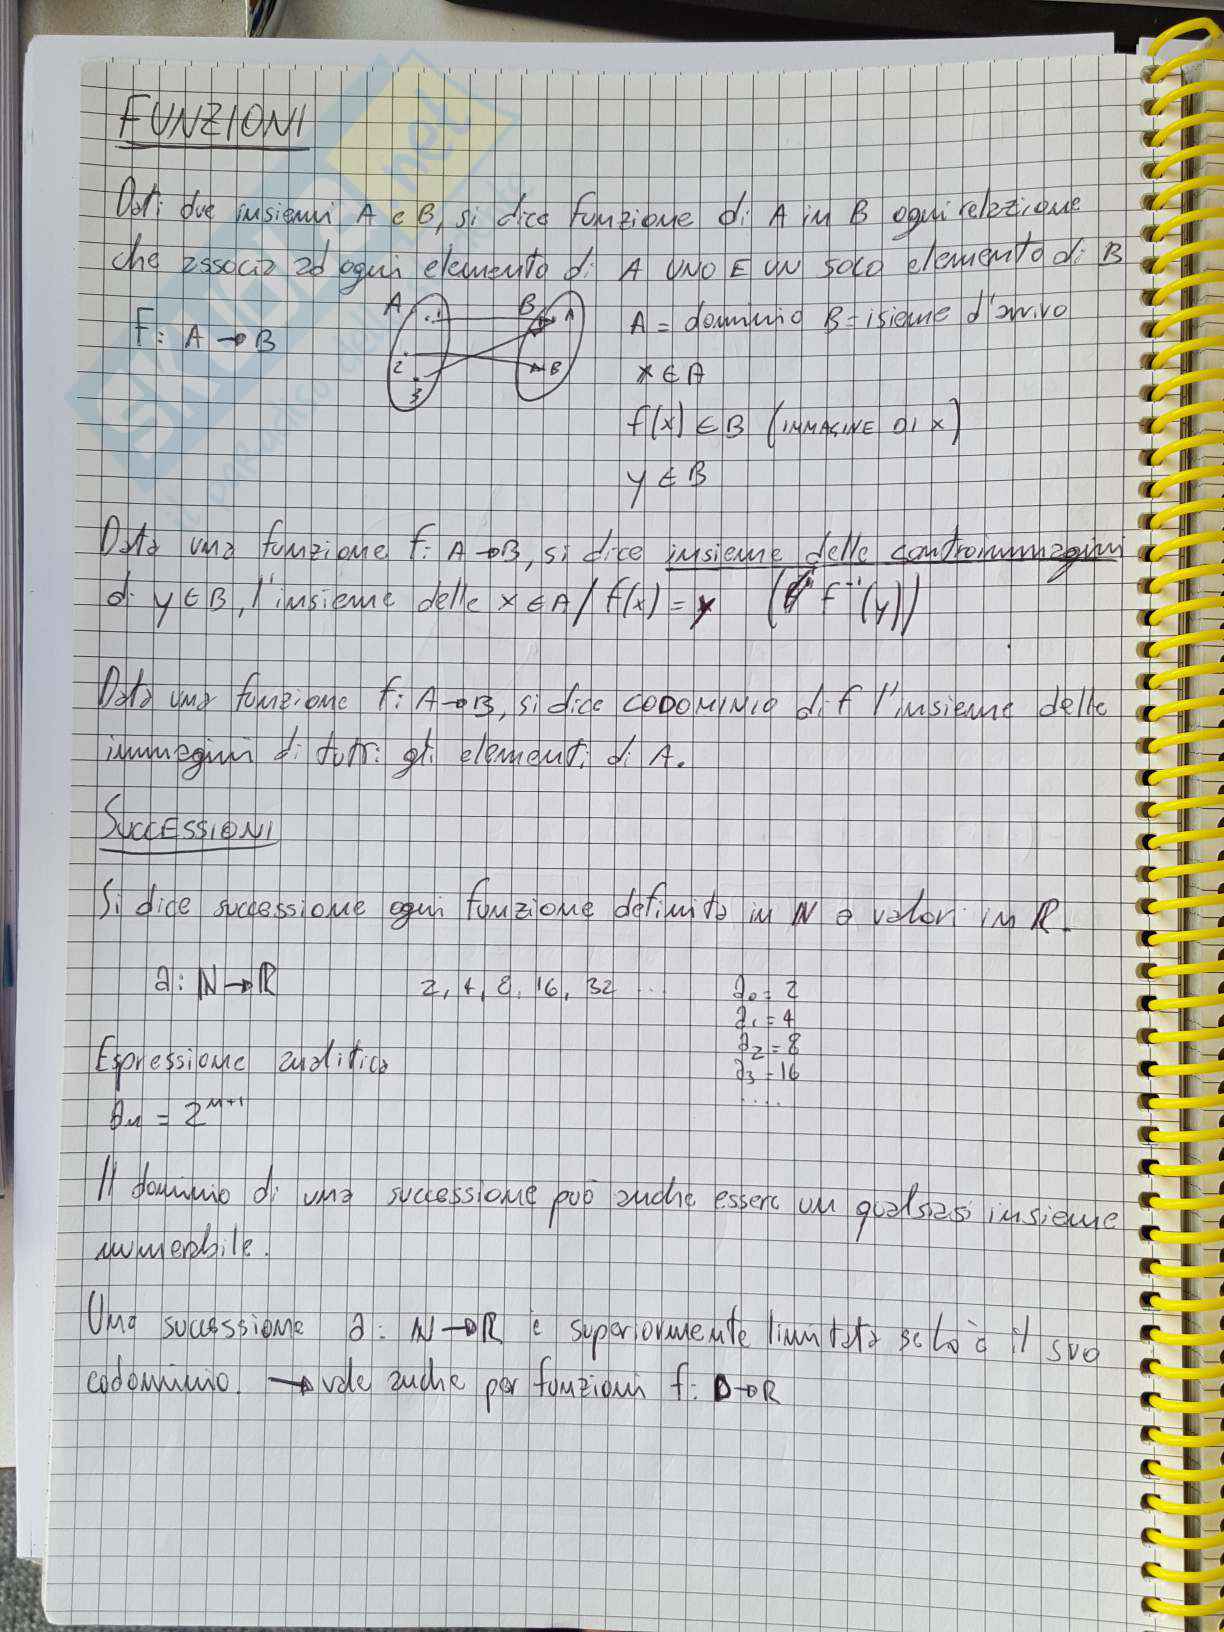 FUNZIONI
Dati due insiemi A e B, si dice funzione di A in B ogni relazione
che associa ad ogni elemento di A UNO E UN SOLO elemento di B
F: A → B
A B
1 A
2 B
3
A = dominio B = isieme d'arrivo
x ∈ A
f(x) ∈ B (IMMAGINE DI x)
y ∈ B
Data una funzione f: A → B, si dice insieme delle controimmagini
di y ∈ B, l'insieme delle x ∈ A / f(x) = y ( f⁻¹(y))
Data una funzione f: A → B, si dice CODOMINIO di f l'insieme delle
immagini di tutti gli elementi di A.
SUCCESSIONI
Si dice successione ogni funzione definita in N a valori in R.
a: N → R 2, 4, 8, 16, 32 ...
a₀ = 2
a₁ = 4
a₂ = 8
a₃ = 16
....
Espressione analitica
aₙ = 2ⁿ⁺¹
Il dominio di una successione può anche essere un qualsiasi insieme
numerabile.
Una successione a: N → R è superiormente limitata se lo è il suo
codominio. → vale anche per funzioni f: D → R
SKUOLA.net
il paradiso dello studente